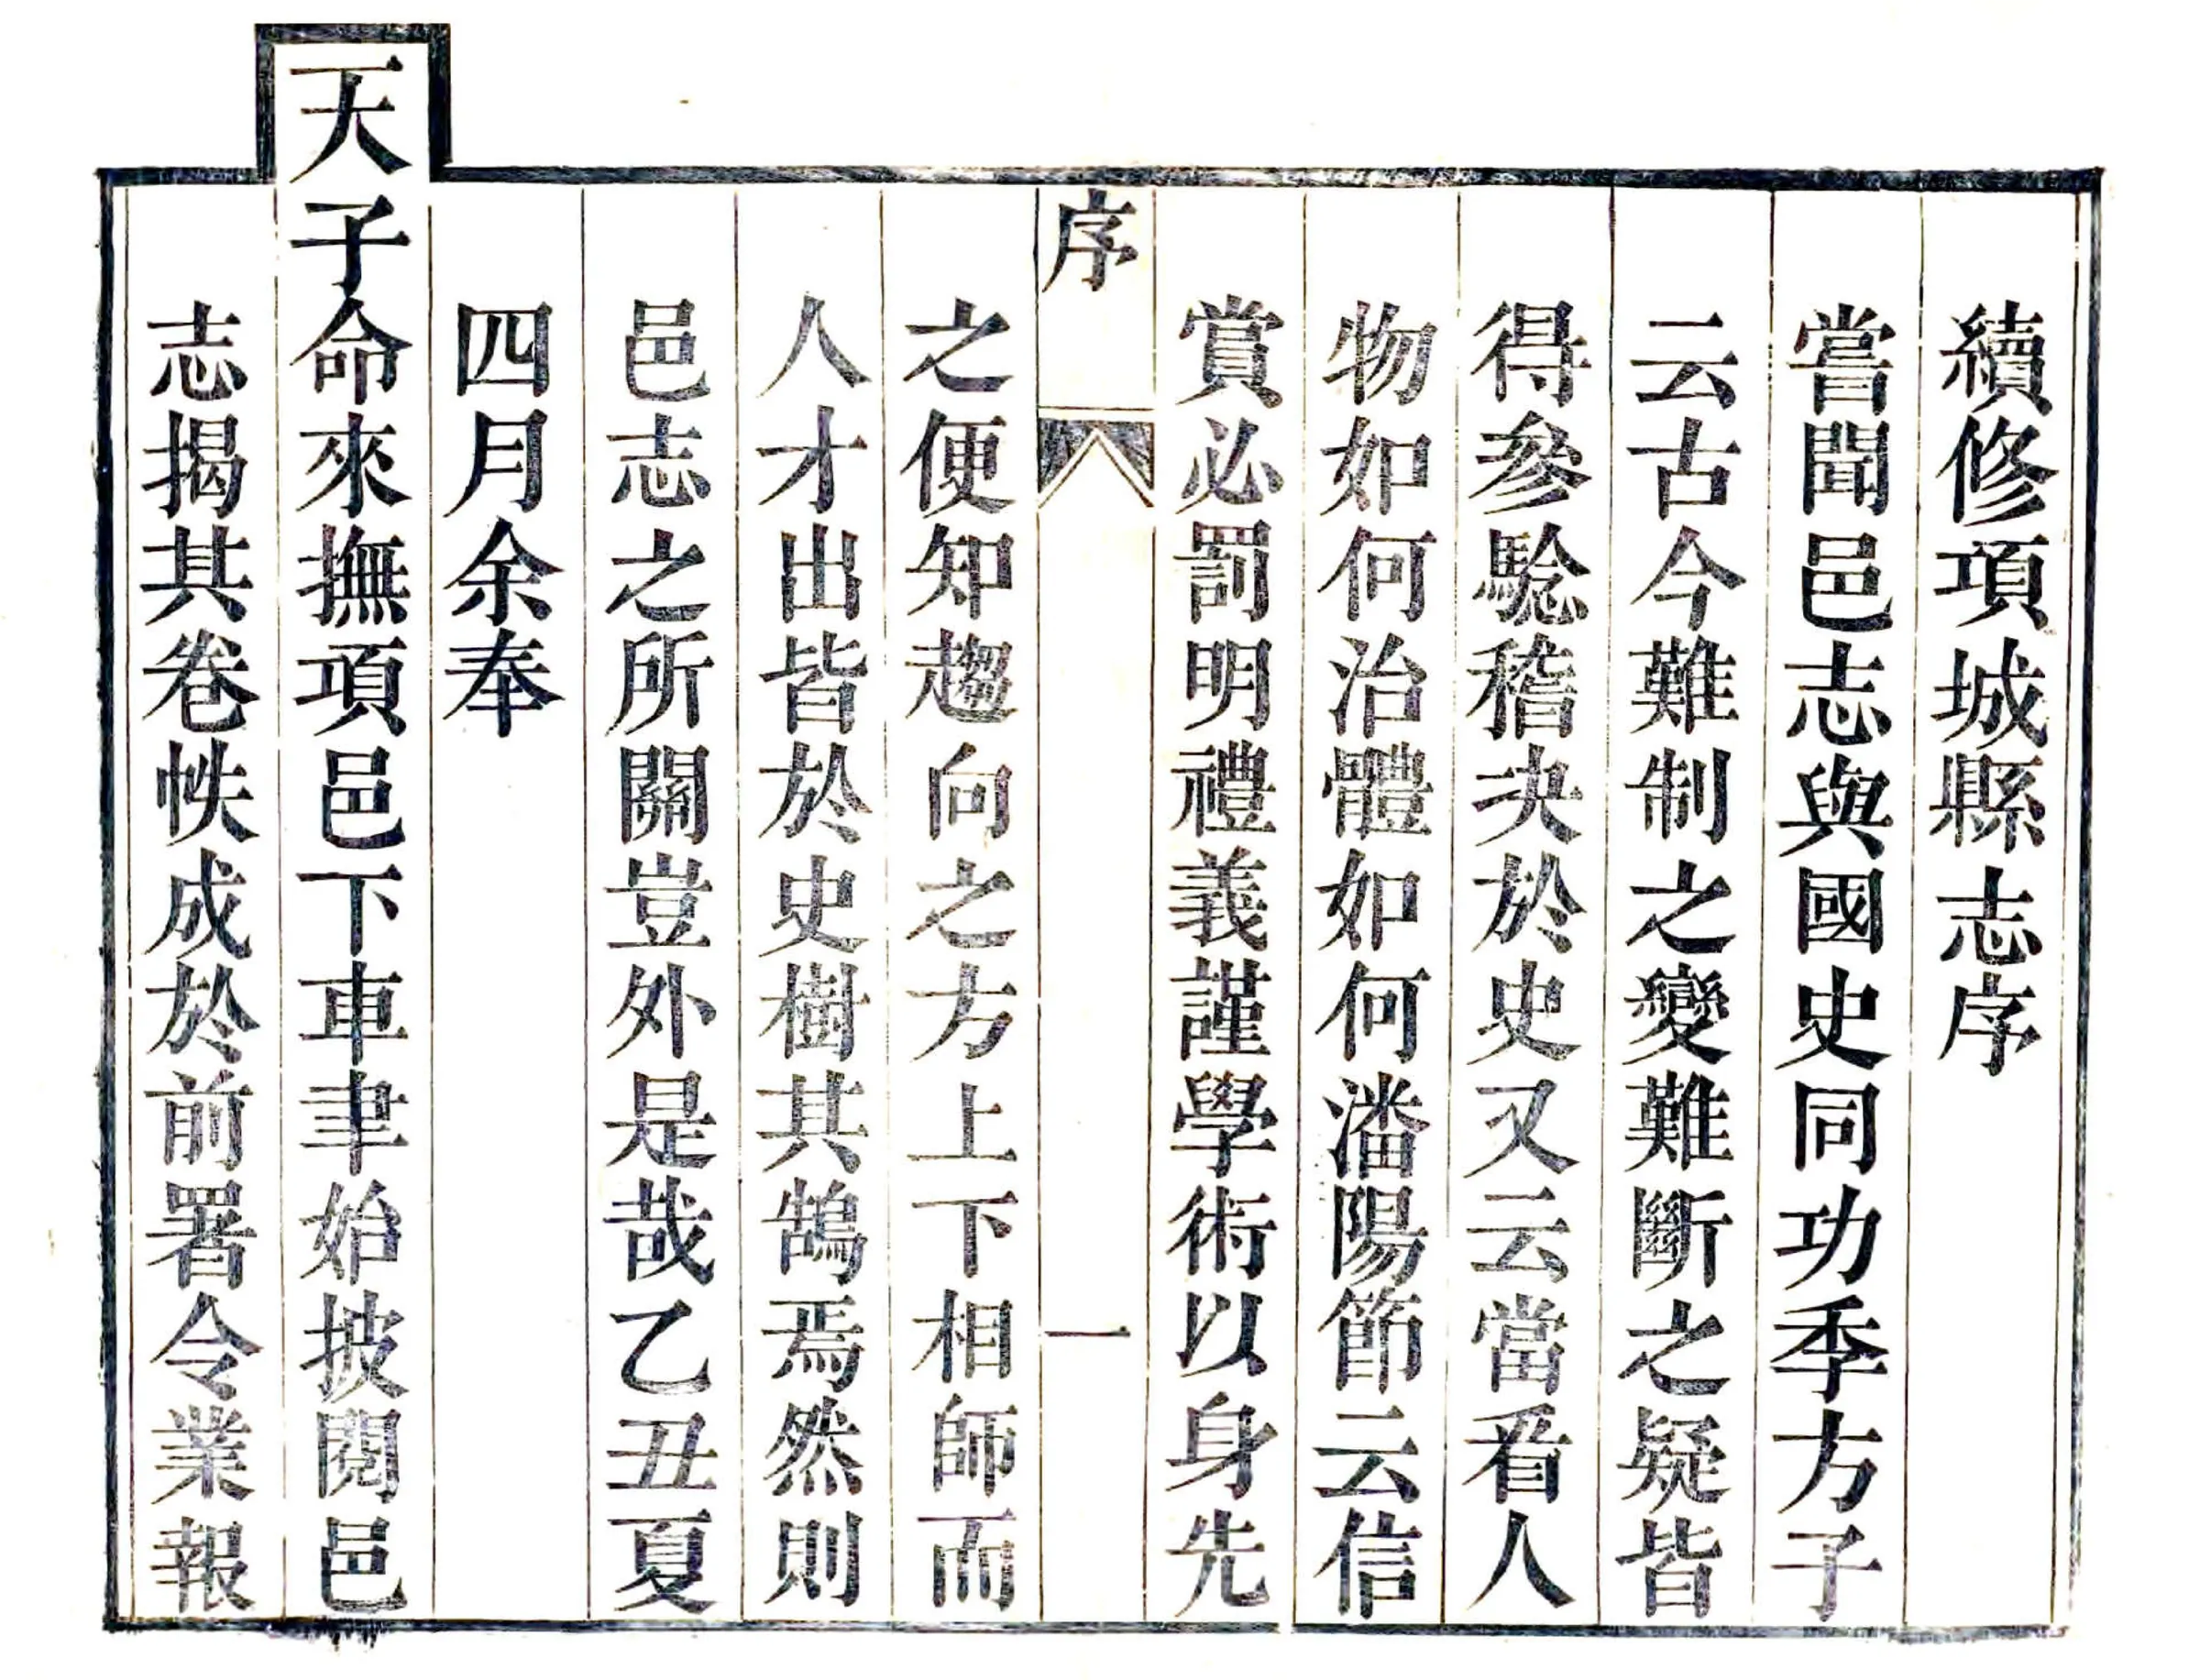 續修項城縣志序
嘗聞邑志與國史同功季方子
云古今難制之變難斷之疑皆
得參騐稽决於史又云當看人
物如何治體如何潘陽節云信
賞必罰明禮義謹學術以身先
序 一
之便知趨向之方上下相師而
人才出皆於史樹其鵠焉然則
邑志之所關豈外是哉乙丑夏
四月余奉
天子命來撫項邑下車聿始披閱邑
志揭其卷帙成於前署令業報